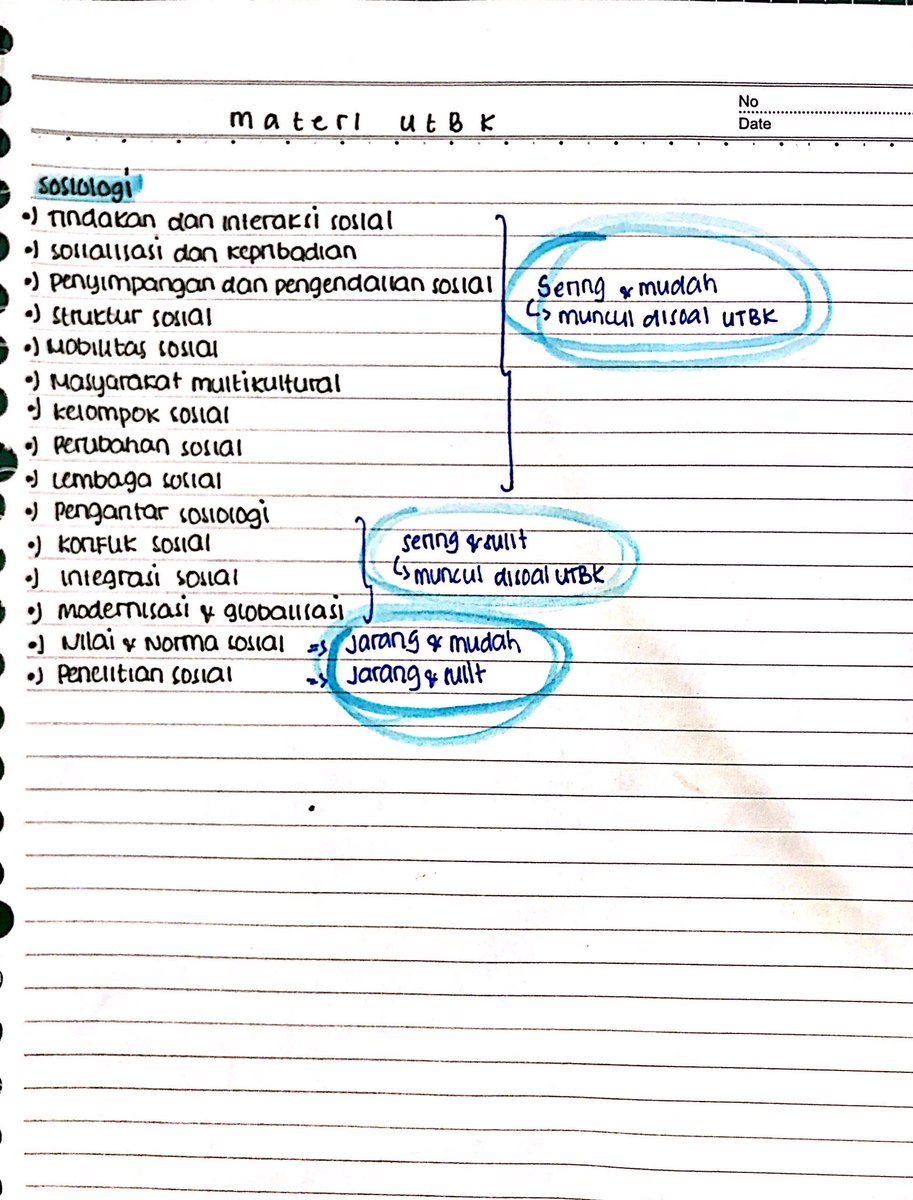 No
Date
Materi UTBK
Sosiologi
•) Tindakan dan interaksi sosial
•) Sosialisasi dan kepribadian
•) Penyimpangan dan pengendalian sosial
•) Struktur sosial
•) Mobilitas sosial
•) Masyarakat multikultural
•) Kelompok sosial
•) Perubahan sosial
•) Lembaga sosial
Sering & mudah
↳ muncul disoal UTBK
•) Pengantar sosiologi
•) Konflik sosial
•) Integrasi sosial
•) Modernisasi & globalisasi
sering & sulit
↳ muncul disoal UTBK
•) Nilai & Norma sosial => Jarang & mudah
•) Penelitian sosial => Jarang & sulit